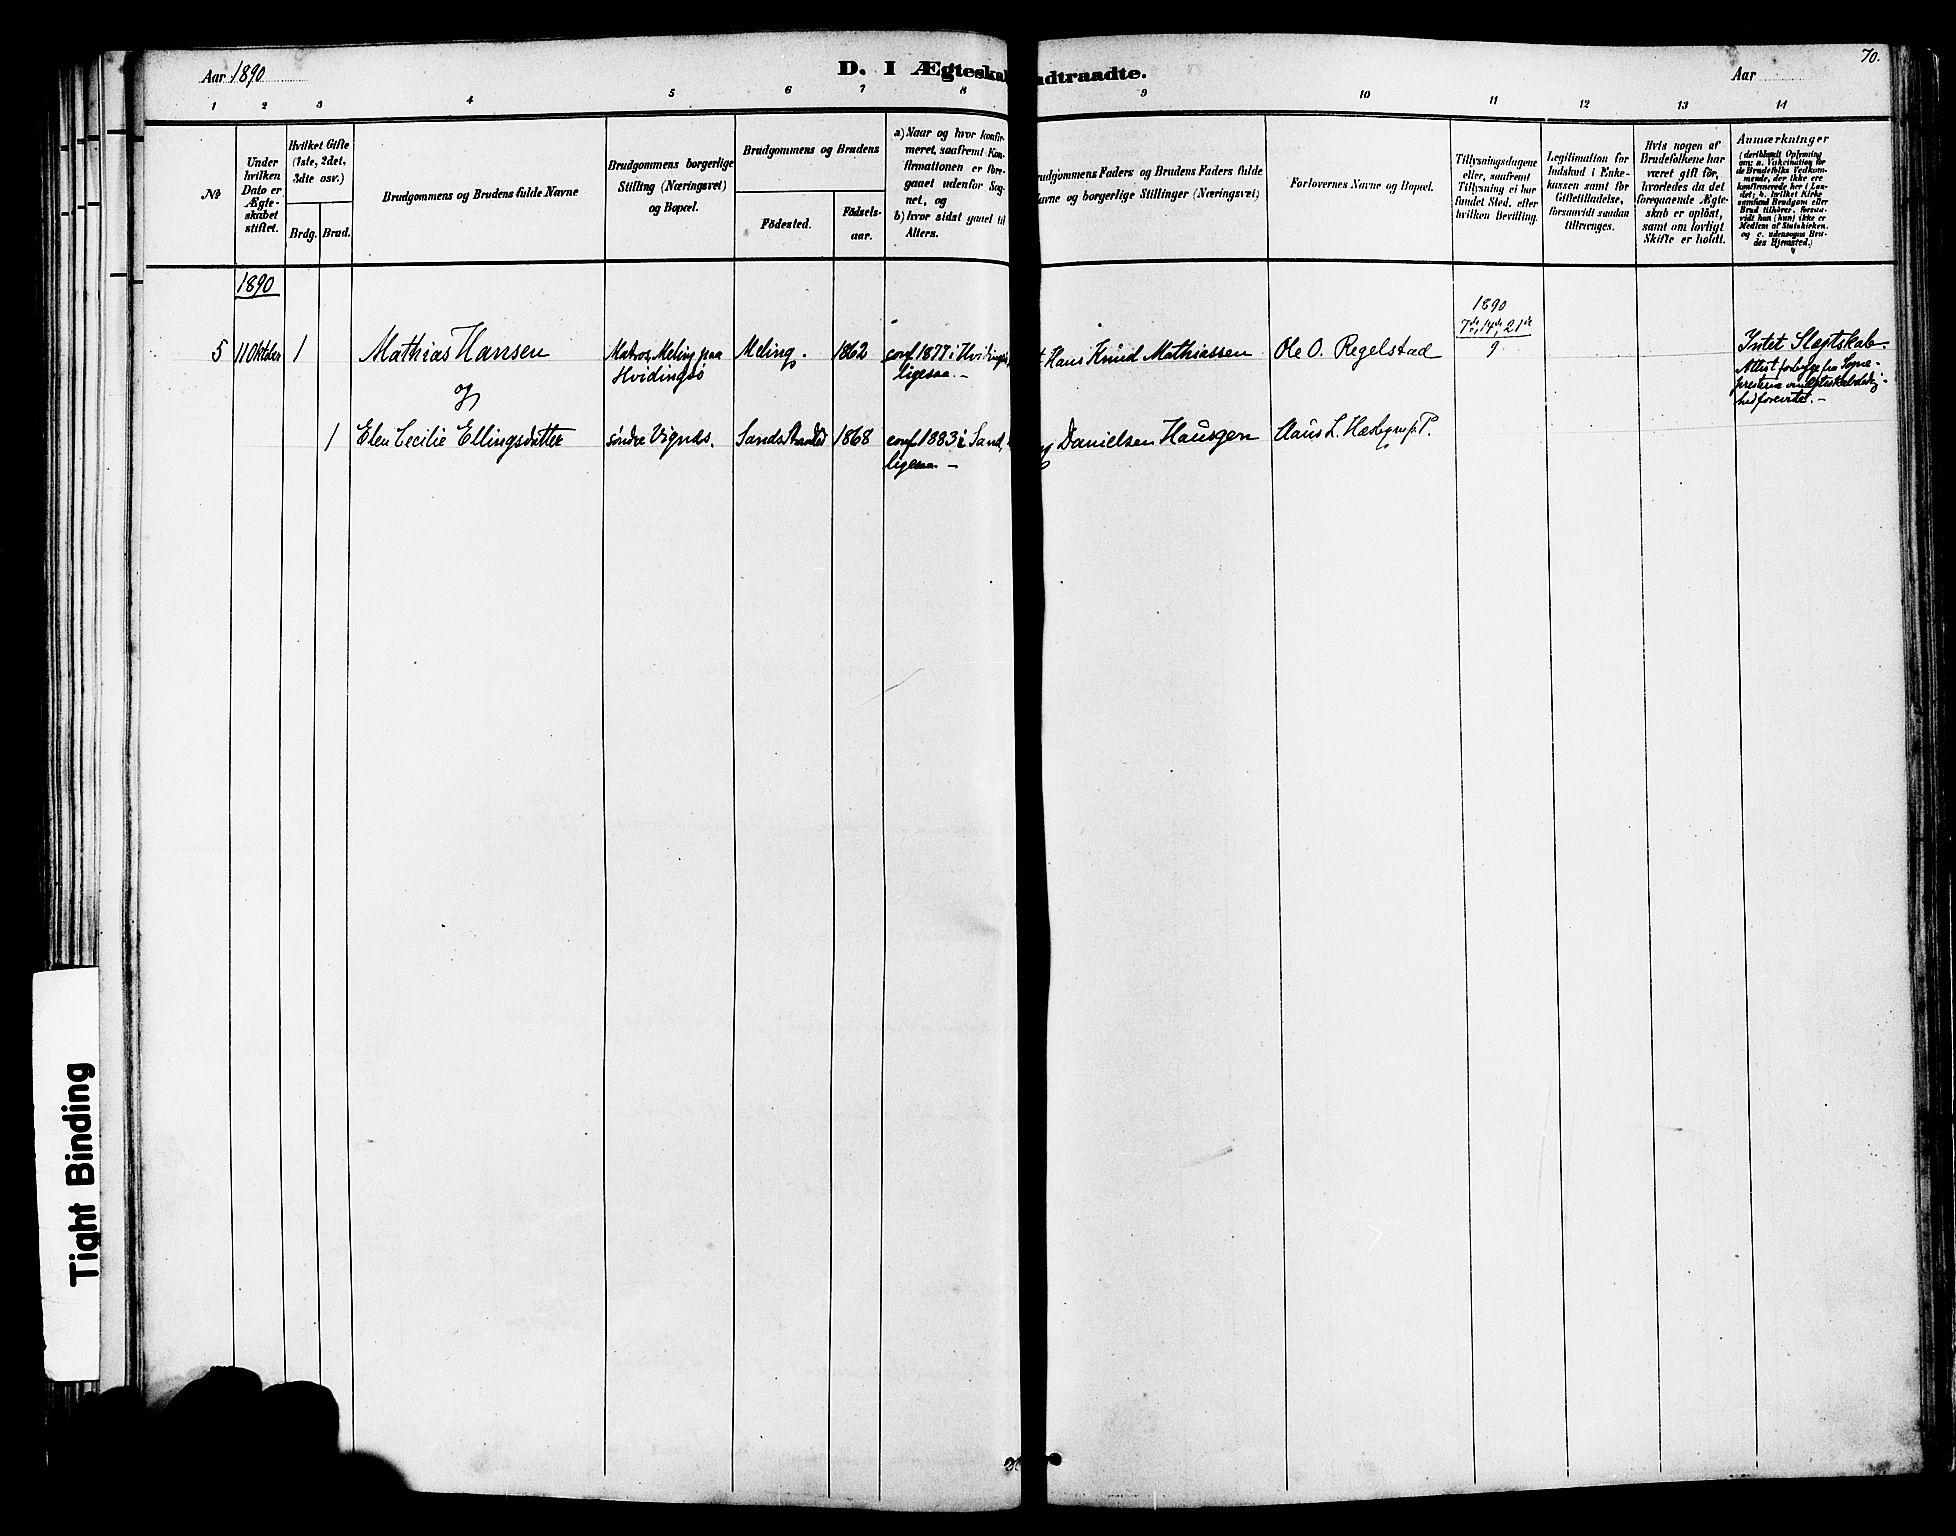 70.
Aar 1890
D. I Ægteskab Indtraadte.
Aar
1 2 3 4 5 6 7 8 9 10 11 12 13 14
No
Under
hvilken
Dato er
Ægte-
skabet
stiftet.
Hvilket Gifte
(1ste, 2det,
3die osv.)
Brdg. Brud.
Brudgommens og Brudens fulde Navne
Brudgommens borgerlige
Stilling (Næringsvei)
og Bopæl.
Brudgommens og Brudens
Födested.
Födsels-
aar.
a) Naar og hvor konfir-
meret, saafremt Kon-
firmationen er fore-
gaaet udenfor Sog-
net, og
b) hvor sidst gaaet til
Alters.
Brudgommens Faders og Brudens Faders fulde
Navne og borgerlige Stillinger (Næringsvei)
Forlovernes Navne og Bopæl.
Tillysningsdagene
eller, saafremt
Tillysning ei har
fundet Sted, efter
hvilken Bevilling.
Legitimation for
Indskud i Enke-
kassen samt for
Giftetilladelse,
forsaavidt saadan
tiltrænges.
Hvis nogen af
Brudefolkene har
været gift før,
hvorledes da det
foregaaende Ægte-
skab er oplöst,
samt om lovligt
Skifte er holdt.
Anmærkninger
(deriblandt Oplysning
om: a. Vakcination for
de Brudefolks Vedkom-
mende, der ikke ere
konfirmerede her i Lan-
det; b. hvilket Kirke
samfund Brudgom eller
Brud tilhörer, forsaa-
vidt han (hun) ikke er
Medlem af Statskirken.
og c. udensogns Bru-
des Hjemsted.)
1890
1890
7de, 14de, 21de
9
5 11 Oktober 1 Mathias Hansen Matros, Meling paa Meling. 1862 conf. 1877 i Hvidingsö, Hans Knud Mathiassen Ole O. Regelstad Intet Slægtskab.
Hvidingsö ligesaa. —
Attest fra Sogne-
og
1 Elen Cecilie Ellingsdatter söndre Vignæs. Sands 1868 conf. 1883 i Sand, Danielsen Haugen Claus L. P.
ligesaa. —
Tight Binding